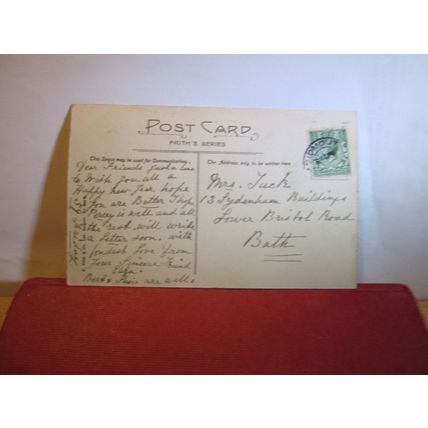 POST CARD
FRITH'S SERIES
This Space may be used for Communication.
The Address only to be written here
Dear Friends Just a line
to Wish you all a
Happy New Year hope
you are Better I hope
Percy is well and all
the rest will write
a letter soon. with
fondest love from
your Sincere Friend
Bert & are all
Mrs. Tuck
13 Sydenham Buildings
Lower Bristol Road
Bath